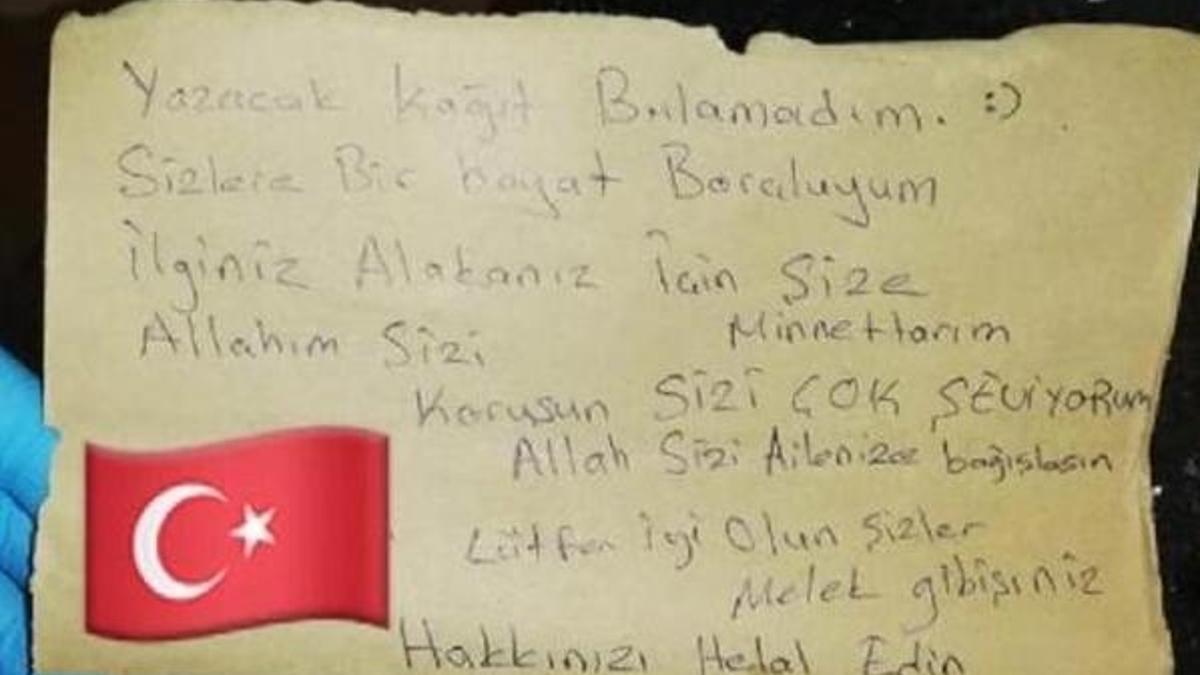 Yazacak kağıt Bulamadım. :)
Sizlere Bir hayat Borçluyum
İlginiz Alakanız İçin Size
Minnettarım
Allahım Sizi
Korusun SİZİ ÇOK SEViYORUM
Allah Sizi Ailenize bağışlasın
Lütfen iyi Olun Sizler
Melek gibisiniz
Hakkınızı Helal Edin